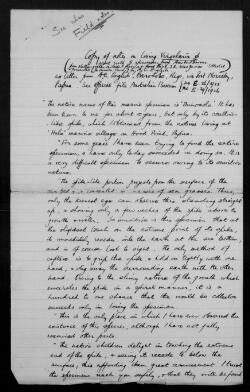 See also
Field notes
Copy of notes on living Virgularia &
in letter from Mr English, Port Moresby,
Papua. See Official files Australian Museum
"The native name of this marine specimen is
has been known to me for about eight years, but only by its quill-like
spike, which I obtained from the natives living at
"Hula" marine village on Hood Point, Papua.
"For some years I have been trying to find the entire
specimen, & have only lately succeeded in doing so. It is
a very difficult specimen to secure owing to its sensitive
nature.
The spike-like portion projects from the surface of the
sea bed & is in a mass of sea grasses. Thus,
only the keenest eye can observe this standing straight
up, & showing only a few inches of the spike above the
growth. So sensitive is this specimen that at
the slightest touch on the extreme point of its spike,
it immediately recedes into the earth out the sea bottom,
and is of course lost to sight. The only method of
capture is to grip the spike & hold on tightly with one
hand, & dig away the surrounding earth with the other
hand. Owing to the slimy nature of the growth which
encircles the spike in a spiral manner, it is a
hundred to one chance that the would be collector
succeeds only in losing the specimen.
"This is the only place in which I have ever observed the
existence of the species, although I have not fully
examined other parts.
"The native children delight in touching the extreme
end of the spike, & seeing it recede to below the
surface, this affording them great amusement. I trust
the specimens reach you safely, & that they will be found